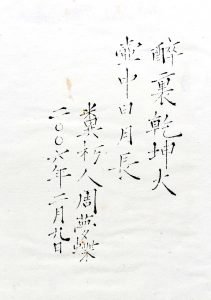 醉裏乾坤大
壶中日月長
糞杓人周夢蝶
二〇〇六年二月九日